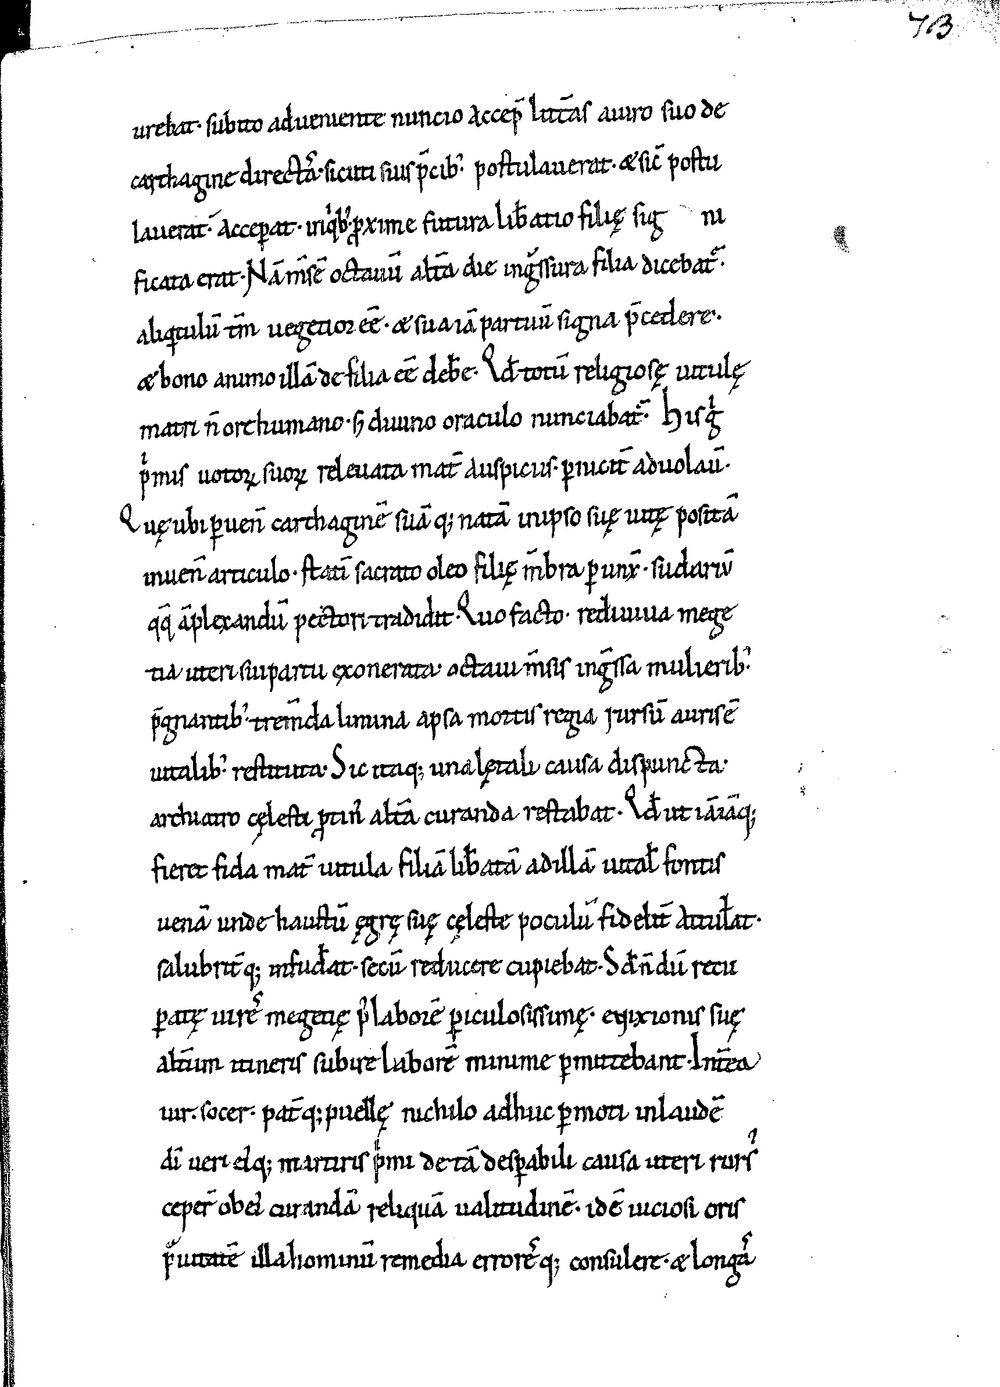 713
urebat· subito adueniente nuncio accep̄ litt̄as a uiro suo de
carthagine directas· sicuti suis p̄cib; postulauerat· & sic̄ postu
lauerat· acceperat· in qib; p̄xime futura lib̄atio filię sig ni
ficata erat· Nā m̄sē octauū alt̄a die ingssura filia dicebat̄·
aliqtulū tm̄ uegetior eē· & sua iā partuū signa p̄cedere·
& bono animo illā de filia eē deb̄e· Qd̄ totū religiosę uitulę
matri n̄ ore humano· s; diuino oraculo nunciabat̄· His g̊
pͥmis uotoꝝ suoꝝ releuata mat̄ auspiciis· p̱nicit̄ aduolau̅·
Quę ubi ꝑuen̄ carthaginē suā q; natā in ipso suę uitę positā
inuen̄ articulo· statī sacrato oleo filię m̄bra ꝑunx̄· sudariū
qq̄ āplexandū pectori tradidit· Quo facto· rediuiua mege
tia uteri sui partu exonerata· octaui m̄sis ingssa mulierib;
p̄gnantib; trem̄da limina a psa mortis regia rursū aurisē
uitalib; restituta· Sic itaq; una lętali causa dispuncta·
archiatro cęlesti ꝓtin̄ alt̄a curanda restabat· Qd̄ ut iā iāq;
fieret fida mat̄ uitula filiā lib̄atā ad illā uital̄ fontis
uenā unde haustū ęgrę suę cęleste poculū fidelit̄ attul̄at·
salubrit̄q; infud̄at· secū reducere cupiebat· Sd̄ n̄dū recu
ꝑatę uires megetię p̄ laborē ꝑiculosissimę· enixionis suę
alt̄um itineris subire laborē minime ꝑmittebant· Int̄ea
uir· socer· pat̄q; puellę nichilo adhuc ꝑmoti in laudē
dī ueri ei q; martiris pͥmi de tā desꝑabili causa uteri rurs̄
ceper̄ ob ei curandā reliquā ualitudinē· idē uiciosi oris
p̄uitatē illa hominū remedia errores q; consulere· & longa